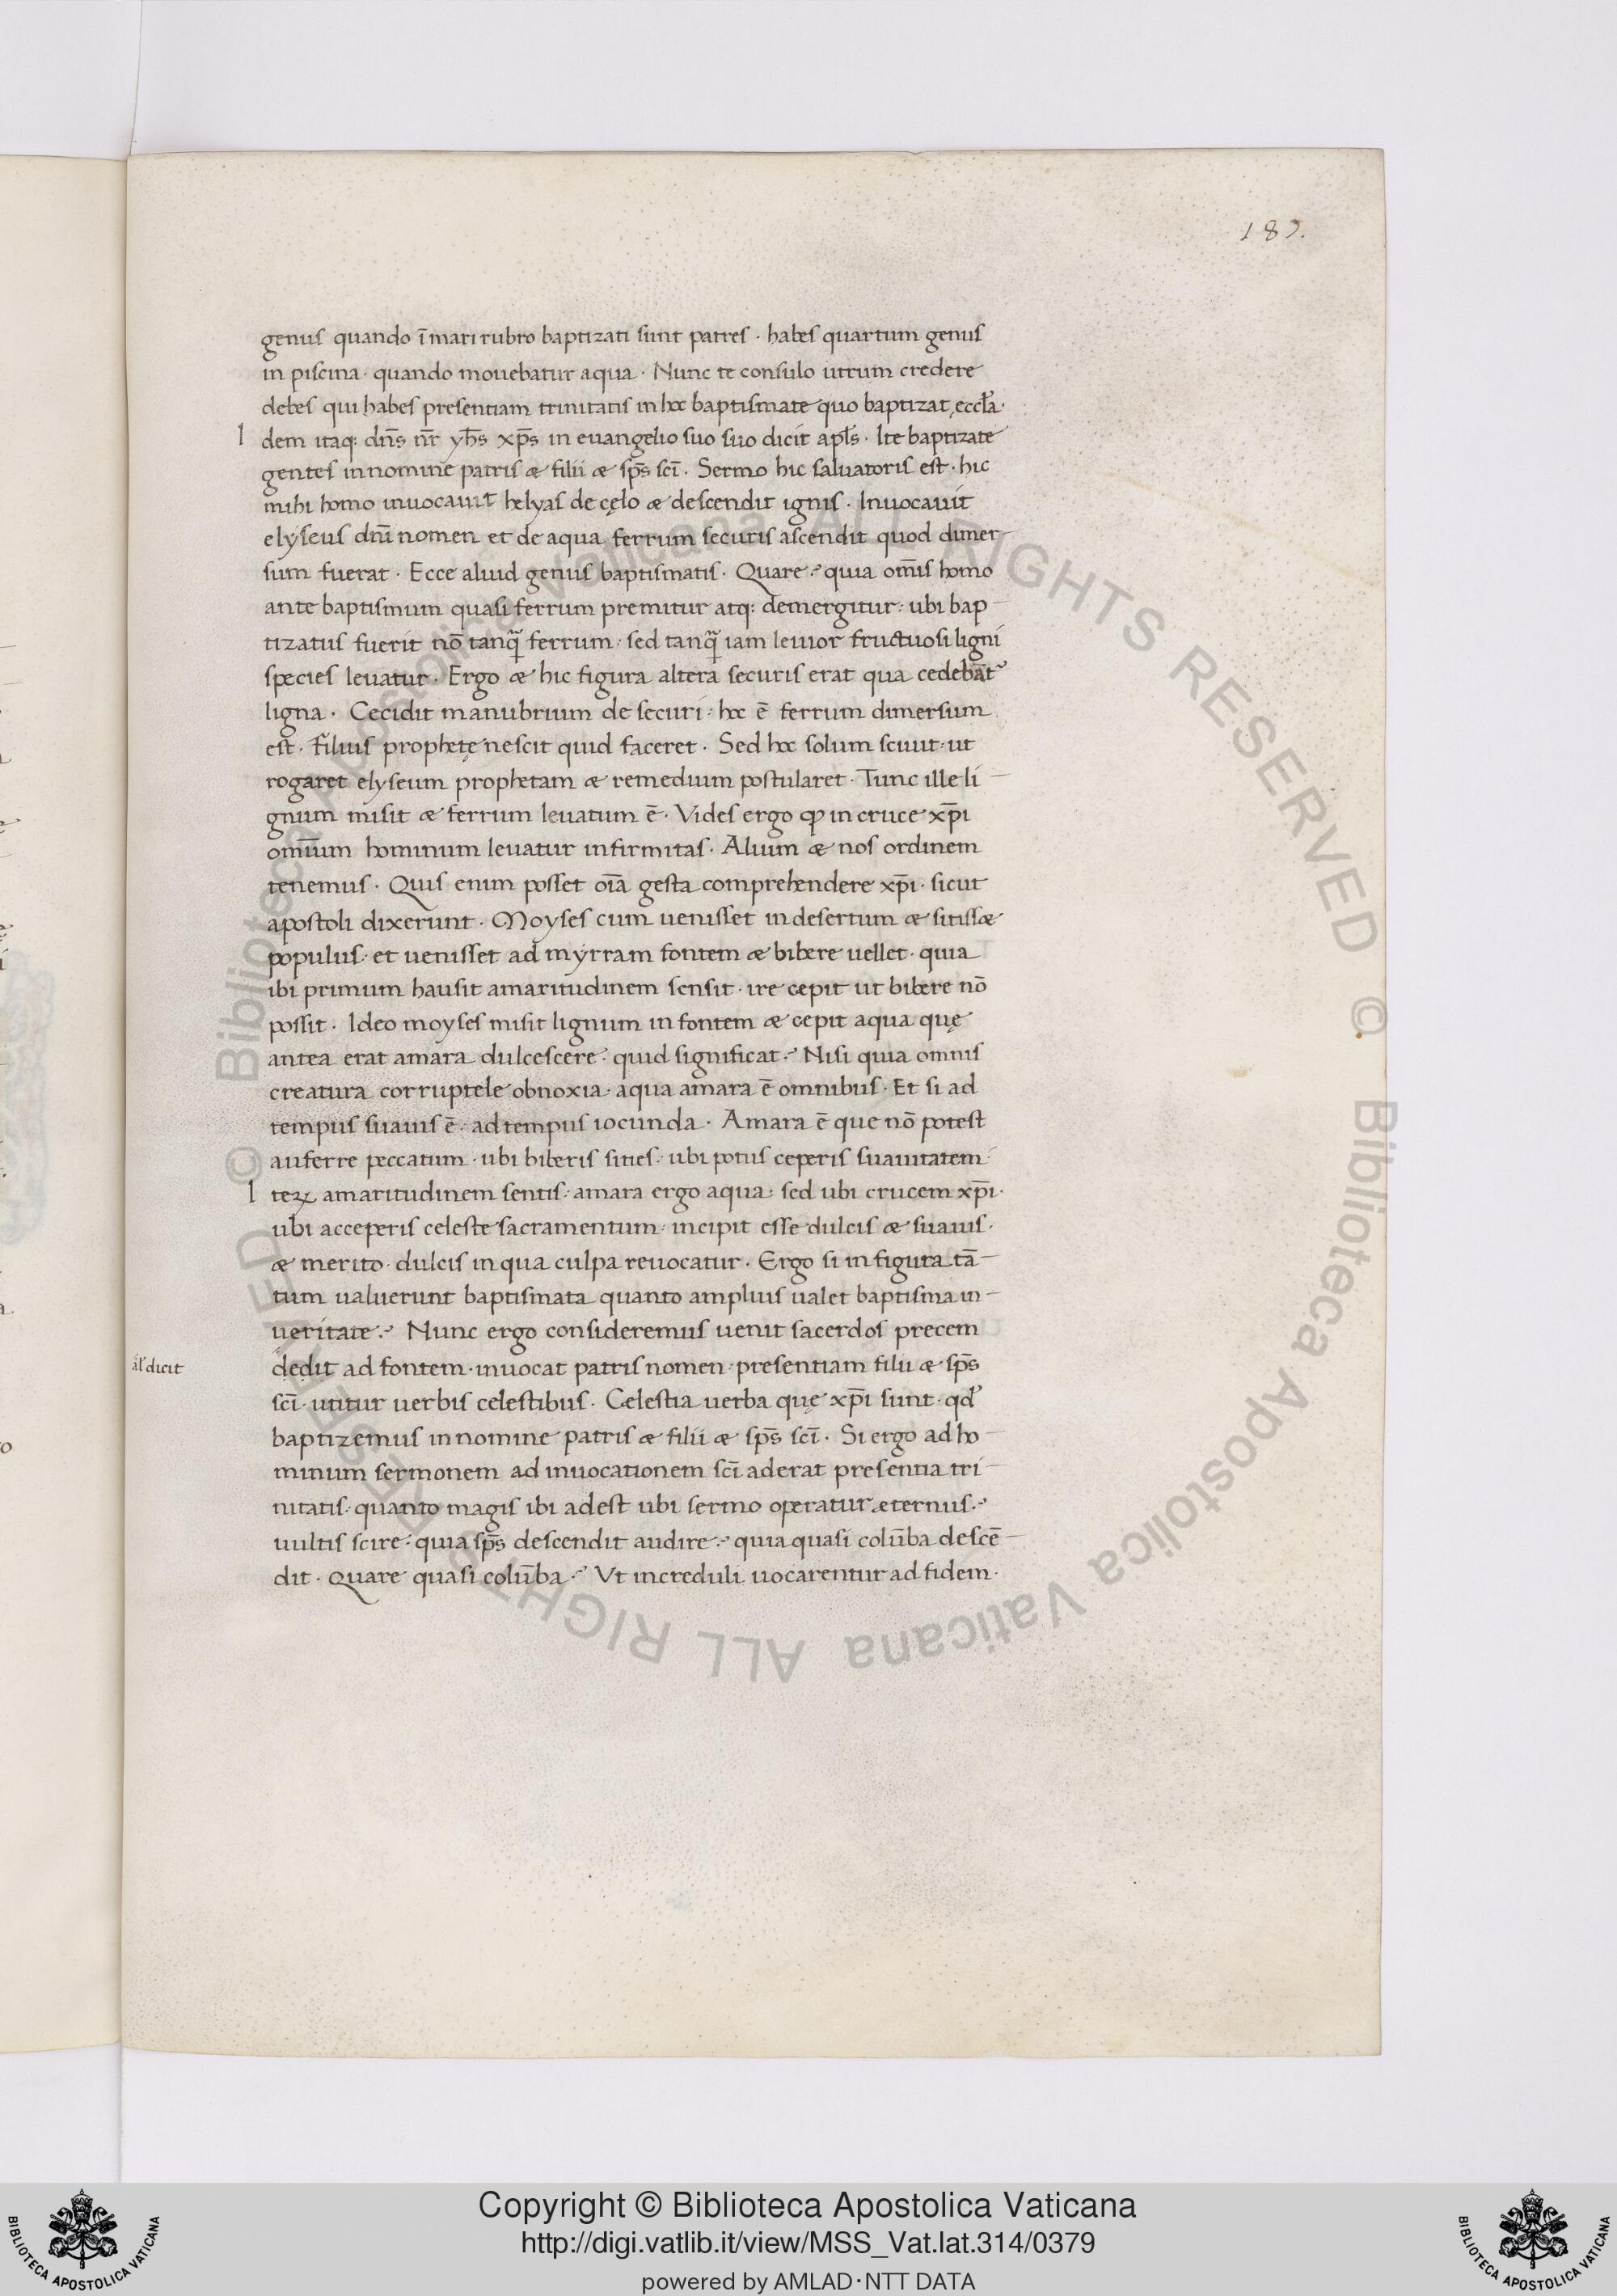 189.
genus quando ī mari rubro baptizati sunt patres · habes quartum genus
in piscina · quando mouebatur aqua · Nunc te consulo utrum credere
debes qui habes presentiam trinitatis in hoc baptismate quo baptizat eccl̄a ·
I dem itaq; dn̄s nr̄ yh̄s xp̄s in euangelio suo suo dicit apl̄s · Ite baptizate
gentes in nomine patris & filii & sp̄s sc̄i · Sermo hic saluatoris est · hic
mihi homo inuocauit helyas de cęlo & descendit ignis · Inuocauit
elyseus dn̄i nomen et de aqua ferrum securis ascendit quod dimer-
sum fuerat · Ecce aliud genus baptismatis · Quare? quia om̄is homo
ante baptismum quasi ferrum premitur atq; demergitur: ubi bap-
tizatus fuerit nō tanq̄ ferrum: sed tanq̄ iam leuior fructuosi ligni
species leuatur · Ergo & hic figura altera securis erat qua cedebāt᷑
ligna · Cecidit manubrium de securi: hoc ē ferrum dimersum
est · Filius prophetę nescit quid faceret · Sed hoc solum sciuit: ut
rogaret elyseum prophetam & remedium postularet · Tunc ille li-
gnum misit & ferrum leuatum ē · Vides ergo ꝙ in cruce xp̄i
om̄ium hominum leuatur infirmitas · Alium & nos ordinem
tenemus · Quis enim posset oīa gesta comprehendere xp̄i · sicut
apostoli dixerunt · Moyses cum uenisset in desertum & sitiss&
populus · et uenisset ad myrram fontem & bibere uellet · quia
ibi primum hausit amaritudinem sensit · ire cepit ut bibere nō
possit · Ideo moyses misit lignum in fontem & cepit aqua quę
antea erat amara dulcescere · quid significat? Nisi quia omnis
creatura corruptele obnoxia · aqua amara ē omnibus · Et si ad
tempus suauis ē: ad tempus iocunda · Amara ē que nō potest
auferre peccatum · ubi biberis sities: ubi potus ceperis suauitatem
I teꝝ amaritudinem sentis: amara ergo aqua: sed ubi crucem xp̄i ·
ubi acceperis celeste sacramentum: incipit esse dulcis & suauis ·
& merito · dulcis in qua culpa reuocatur · Ergo si in figura tā-
tum ualuerunt baptismata quanto amplius ualet baptisma in-
ueritate? Nunc ergo consideremus uenit sacerdos precem
al' dicit
dedit ad fontem · inuocat patris nomen: presentiam filii & sp̄s
sc̄i · utitur uerbis celestibus · Celestia uerba quę xp̄i sunt · qd̓
baptizemus in nomine patris & filii & sp̄s sc̄i · Si ergo ad ho-
minum sermonem ad inuocationem sc̄i aderat presentia tri-
nitatis · quanto magis ibi adest ubi sermo operatur æternus?
uultis scire · quia sp̄s descendit audire? quia quasi colūba descē-
dit · Quare quasi colūba? Vt increduli uocarentur ad fidem ·
© Biblioteca Apostolica Vaticana ALL RIGHTS RESERVED
© Biblioteca Apostolica Vaticana ALL RIGHTS RESERVED
Copyright © Biblioteca Apostolica Vaticana
http://digi.vatlib.it/view/MSS_Vat.lat.314/0379
powered by AMLAD·NTT DATA
BIBLIOTECA APOSTOLICA VATICANA
BIBLIOTECA APOSTOLICA VATICANA